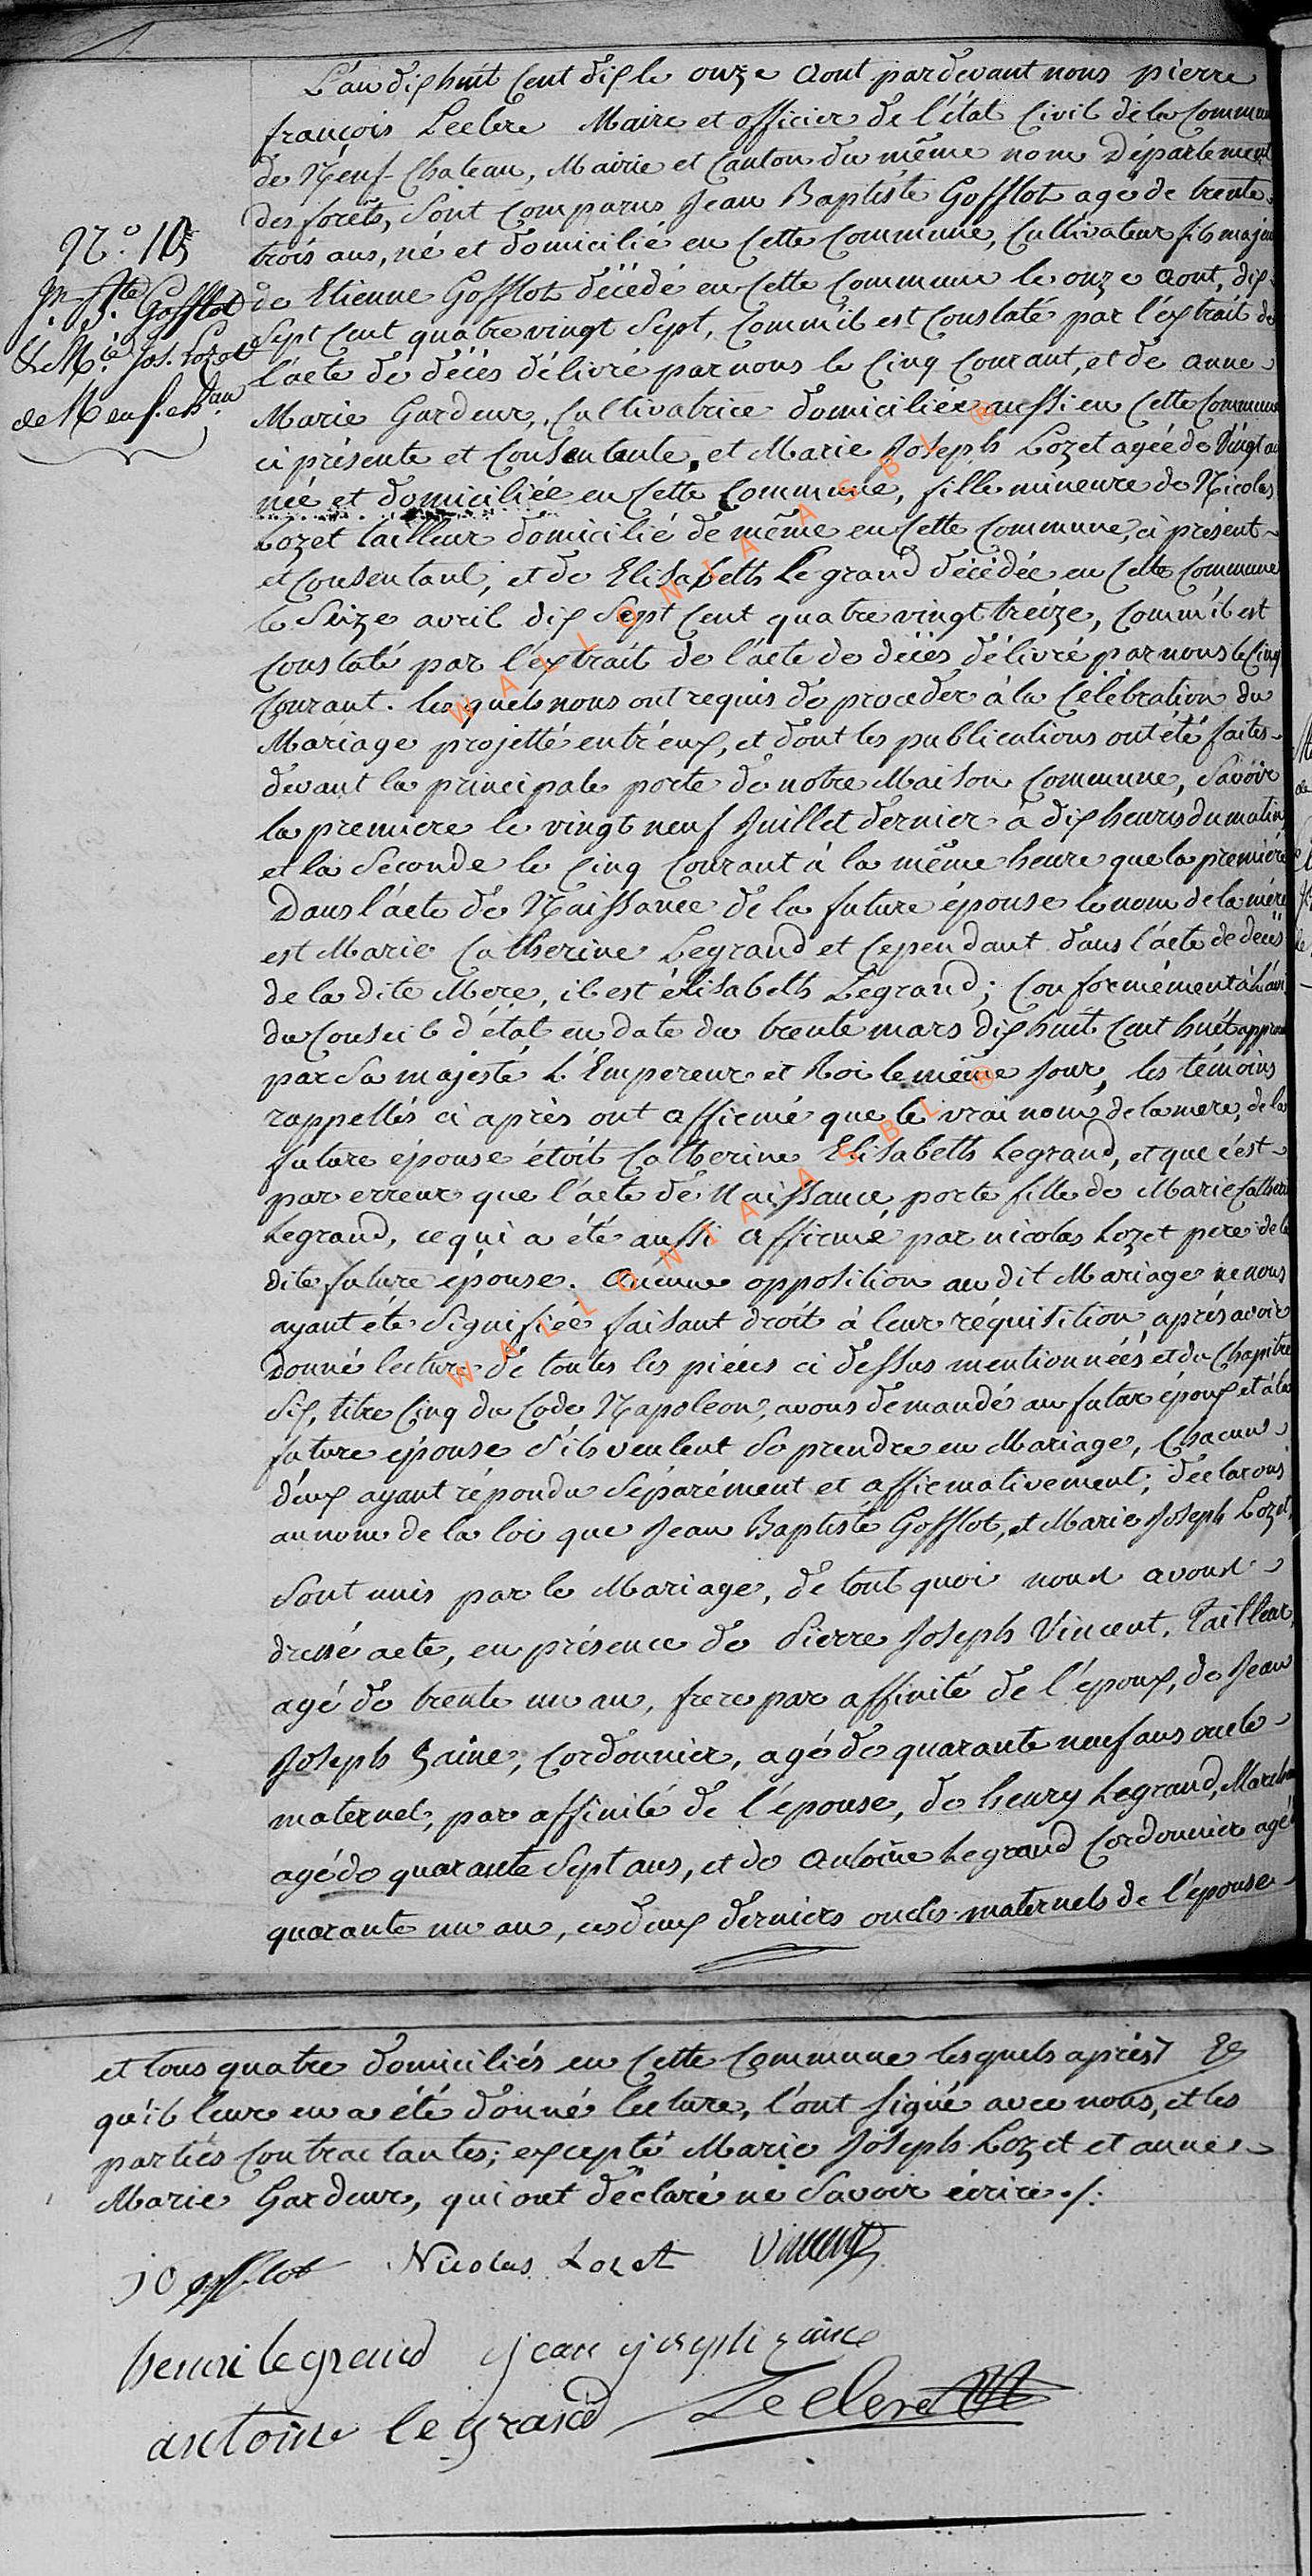 L'an dix huit Cent dix le onze Aout pardevant nous pierre
françois Leclere Maire et officier de l'état Civil de la Commune
de Neuf-Chateau, Mairie et Canton du même nom Département
des forêts, Sont Comparus Jean Baptiste Gofflot agé de trente
trois ans, né et domicilié en Cette Commune, Cultivateur fils majeur
N.º 10
Jn. Bte. Gofflot
& Mie. Jos. Lozet
de Neufchau
de Etienne Gofflot décédé en Cette Commune le onze Aout, dix
Sept Cent quatre vingt Sept, Comm'il est Constaté par l'extrait de
l'acte de décès délivré par nous le Cinq Courant, et de anne
Marie Gardeur, Cultivatrice domiciliée aussi en Cette Commune
ci présente et Consentente, et Marie Joseph Lozet agée de Vingt an
née et domiciliée en Cette Commune, fille mineure de Nicolas
Lozet tailleur domicilié de même en Cette Commune, ci présent
et Consentant, et de Elisabeth Legrand décédée en Cette Commune
le Seize avril dix Sept Cent quatre vingt treize, Comm'il est
Constaté par l'éxtrait de l'acte de décès délivré par nous le Cinq
Courant. lesquels nous ont requis de proceder à la Célébration du
Mariage projetté entr'eux, et dont les publications ont été faites
devant la principale porte de notre Maison Commune, Savoir
la premiere le vingt neuf Juillet dernier à dix heures du matin
et la Seconde le Cinq Courant à la même heure que la premiere
Dans l'acte de Naissance de la future épouse le nom de la mére
est Marie Catherine Legrand et Cependant dans l'acte de décès
de la dite Mere, il est élisabeth Legrand; Conformément à l'avis
du Conseil d'état en date du trente mars dix huit Cent huit
par Sa majesté L'Empereur et Roi le même Jour, les témoins
rappellés ci après ont affirmé que le vrai nom de la mere, de la
future épouse étoit Catherine Elisabeth Legrand, et que c'est
par erreur que l'acte de Naissance porte fille de Marie Catherine
Legrand, ce qui a été aussi affirmé par nicolas Lozet pere de la
dite future epouse. Aucune opposition au dit Mariage ne nous
ayant été Signifiée faisant droit à leur réquisition après avoir
Donné lecture de toutes les pièces ci dessus mentionnées et du Chapitre
Six, titre Cinq du Code Napoleon, avons demandé au futur époux et à la
future épouse S'ils veulent Se prendre en Mariage, Chacun
d'eux ayant répondu Séparément et affirmativement; déclarons
au nom de la loi que Jean Baptiste Gofflot, et Marie Joseph Lozet,
Sont unis par le Mariage, de tout quoi nous avons
dressé acte, en présence de Pierre Joseph Vincent, Tailleur,
agé de trente un an, frere par affinité de l'époux, de Jean
Joseph Zaine, Cordonnier, agé de quarante neuf ans oncle
maternel, par affinité de l'épouse, de henry Legrand, Marchand
agé de quarante Sept ans, et de Antoine Legrand Cordonnier agé
quarante un an, ces deux derniers oncles maternels de l'épouse
et tous quatre domiciliés en Cette Commune lesquels après
qu'il leur en a été donné lecture, l'ont Signé avec nous, et les
parties Contractantes; excepté Marie Joseph Lozet et anne
Marie Gardeur, qui ont déclaré ne Savoir écrire./:
Gofflot Nicolas Lozet Vincent
henri legrand jean joseph zaine
antoine legrand Leclere
WALLONIA ASBL ®
WALLONIA ASBL ®